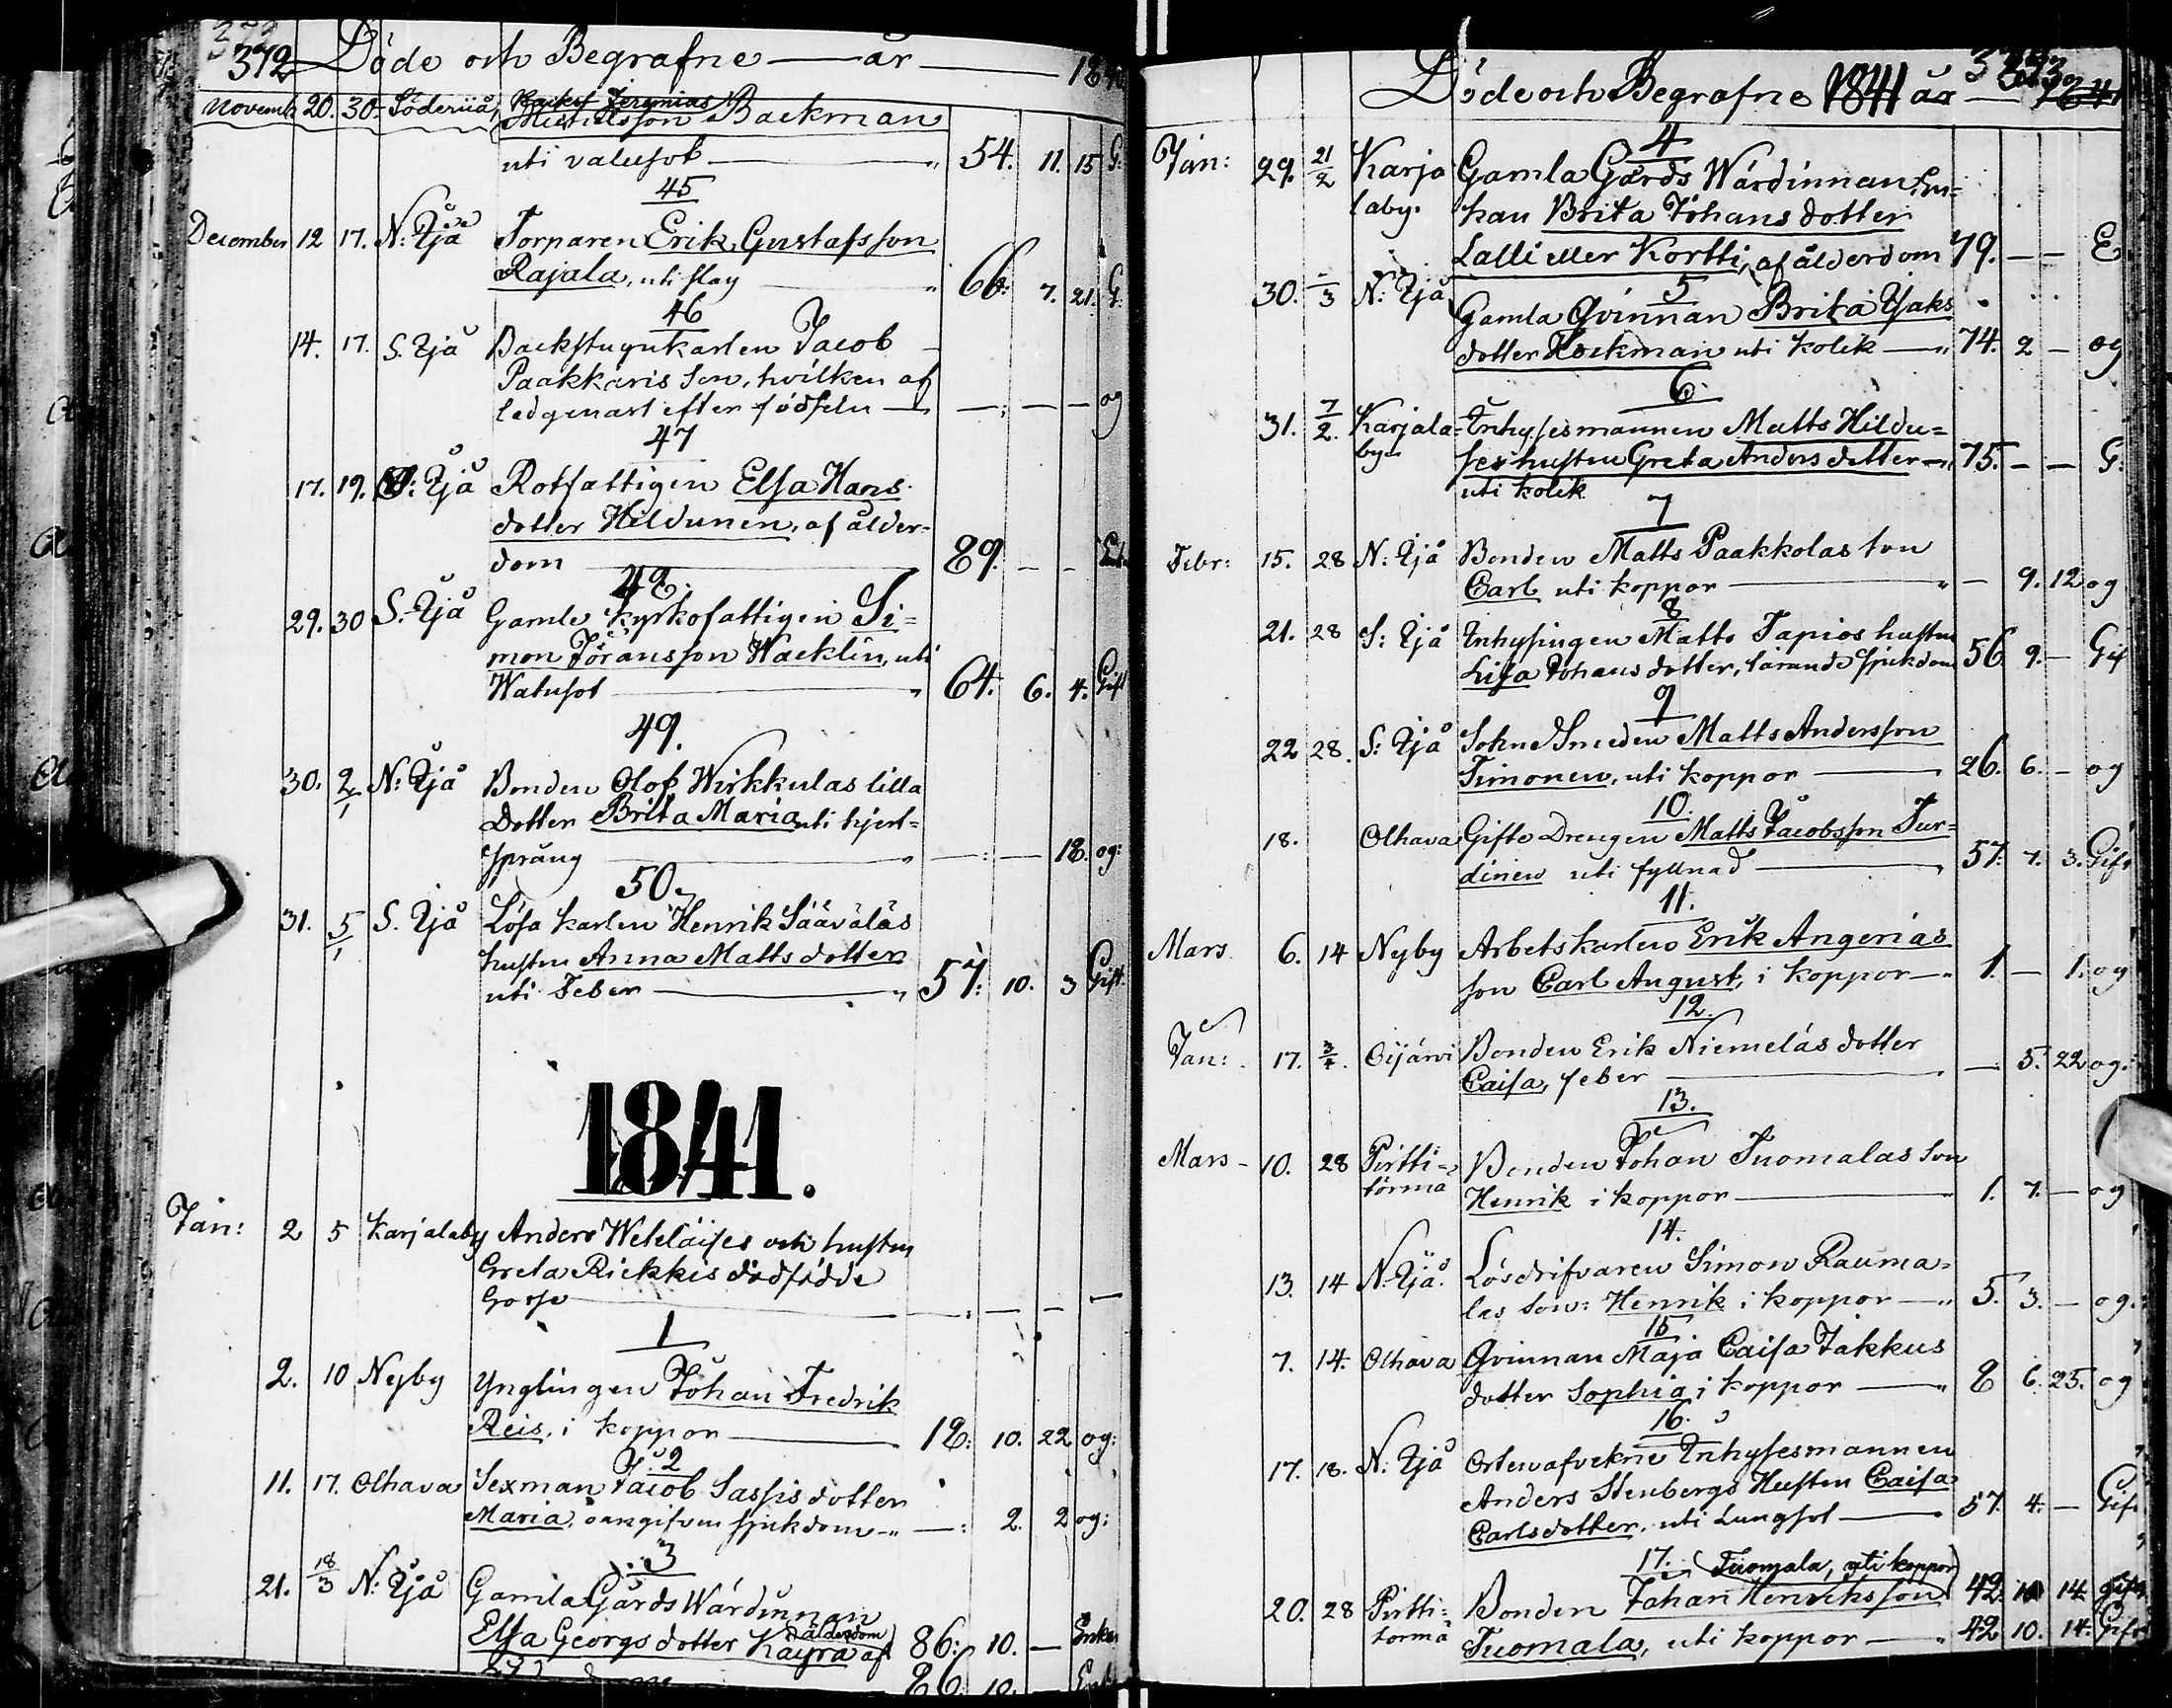 372 Döde och Begrafne — år — 1840
Novemb 20. 30. Söderijå, Kaiks Jeremias
Michelsson Backman
uti vatusot — 54. 11. 15 G.
45
December 12 17. N: Ijå Torparen Erik Gustafsson
Rajala, uti slag 66: 7. 21. G.
46
14. 17. S. Ijå Backstugukarlen Jacob
Paakkaris Son, hvilken af
led genast efter födseln — — — og
47
17. 19. S: Ijå Rotfattigen Elsa Hans
dotter Hildunen, af ålder-
dom 89. — — Enk.
48.
29. 30 S. Ijå Gamle Kyrkofattigen Si=
mon Jöransson Wacklin, uti
Watusot 64. 6. 4. Gift
49.
30. 2/1 N: Ijå Bonden Olof Wirkkulas lilla
Dotter Brita Maria uti hjert=
språng — — 18. og:
50.
31. 5/1 S. Ijå Lösa karlen Henrik Sääväläs
hustru Anna Matts dotter
uti Feber — 57: 10. 3 Gift.
1841.
Jan: 2 5 Karjalaby Anders Weteläises och hustru
Greta Riekkis dödfödde
Gosse — — — —
1
2. 10 Nyby Ynglingen Johan Fredrik
Reis, i koppor — 18: 10. 22 og:
2
11. 17. Olhava Sexman Jacob Sassis dotter
Maria, oangifven sjukdom — 2. 2 og:
3
21. 18/3 N: Ijå Gamla Gårds Wärdinnan
Elsa Georgs dotter Kayra af ålderdom 86: 10. — Enka
86. 10. Enk
Döde och Begrafne 1841 år
4
Jan: 29. 21/2 Karja Gamla Gårds Wärdinnan En=
laby. kan Brita Johans dotter
Lalli eller Kortti, af ålderdom 79. — — E
5
30. -/3 N: Ijå Gamla Qvinnan Brita Isaks
dotter Hockman uti kolik — 74. 2 — og
6
31. 7/2. Karjala= Inhysesmannen Matts Hildu=
by. ses hustru Greta Anders dotter — 75. — — G:
uti kolik
7
Febr: 15. 28 N: Ijå Bonden Matts Paakkolas son
Carl uti koppor — — 9. 12 og
8
21. 28 S: Ijå Inhysingen Matts Tapios hustru
Lisa Johans dotter, tärande sjukdom 56 9. — Gif
9
22 28. S: Ijå Sockne Smeden Matts Andersson
Timonen, uti koppor — 26. 6. — og
10.
18. Olhava Gifte Drengen Matts Jacobsson Tur=
dinen uti fyllnad — 57: 7. 3. Gift
11.
Mars. 6. 14 Nyby Arbetskarlen Erik Angerias
son Carl August, i koppor — 1. — 1. og
12.
Jan: 17. 3/4. Oijärvi Bonden Erik Niemeläs dotter
Caisa, feber — — 5. 22 og:
13.
Mars - 10. 28 Pirtti= Bonden Johan Tuomalas son
törmä Henrik i koppor — 1. 7. — og
14.
13. 14 N. Ijå. Lösdrifvaren Simon Rauma=
las Son: Henrik i koppor — 5. 3. — og.
15
7. 14. Olhava Qvinnan Maja Caisa Jakkus
dotter Sophia i koppor — 8 6. 25. og
16.
17. 18. N: Ijå Inhysesmannen
Anders Stenbergs Hustru Caisa
Carlsdotter, uti Lungsot — 57. 4. — Gift
17. (Tuomala, uti koppor)
20. 28 Pirtti= Bonden Johan Henriksson 42. 10 14 gift
törmä Tuomala, uti koppor — 42 10. 14. Gift